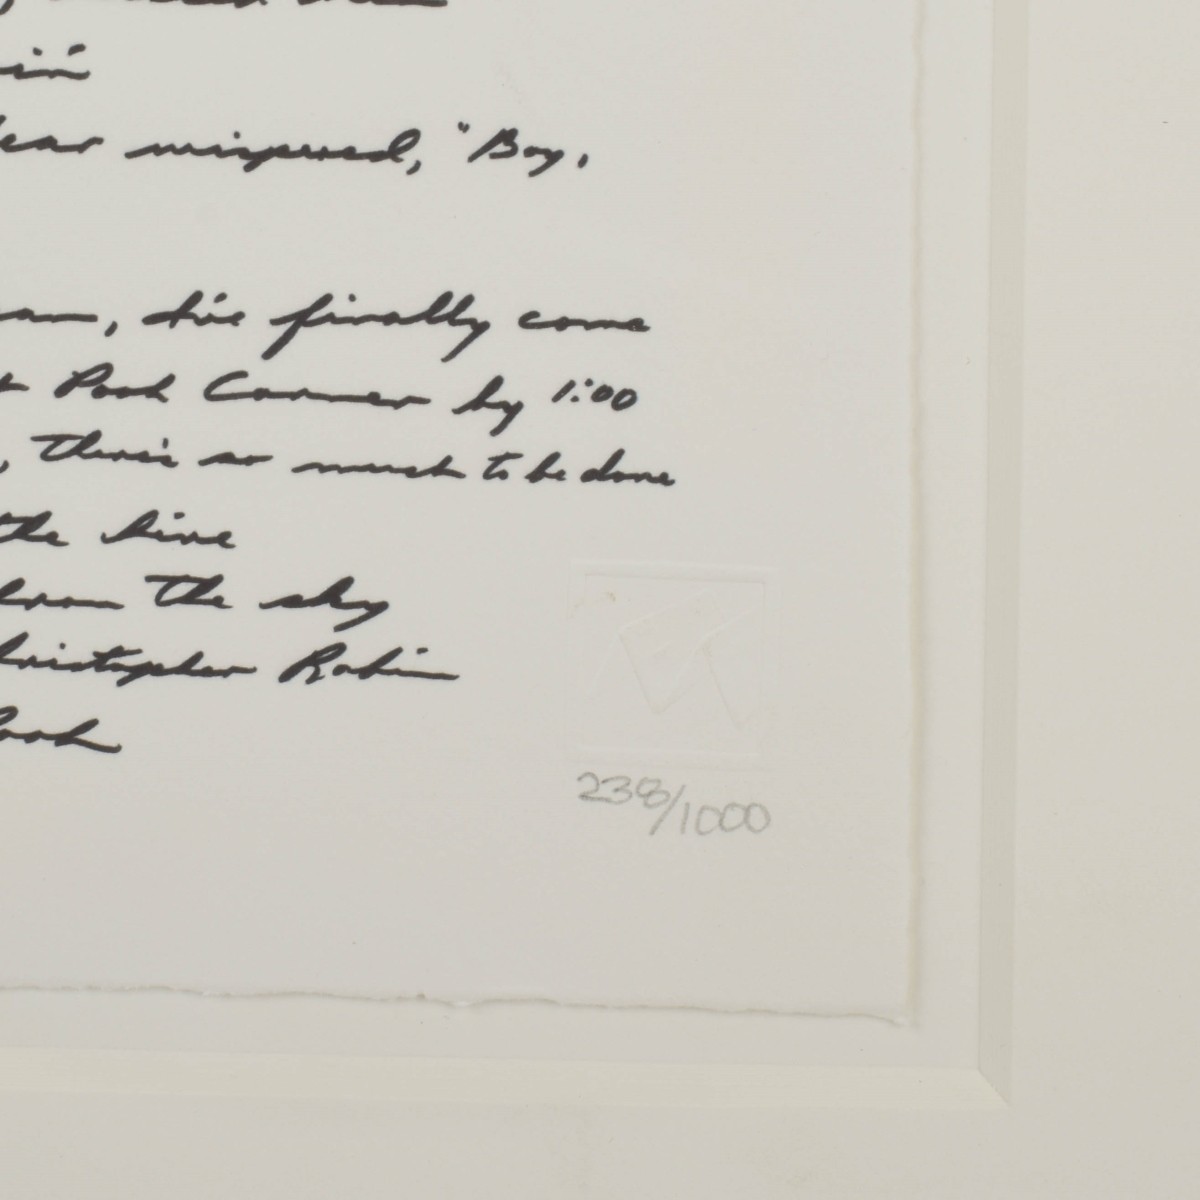 in'
ear wispered, "Boy,
, I've finally come
Pooh Corner by 1:00
, there's so much to be done
the hive
from the sky
hristopher Robin
Pooh
238/1000